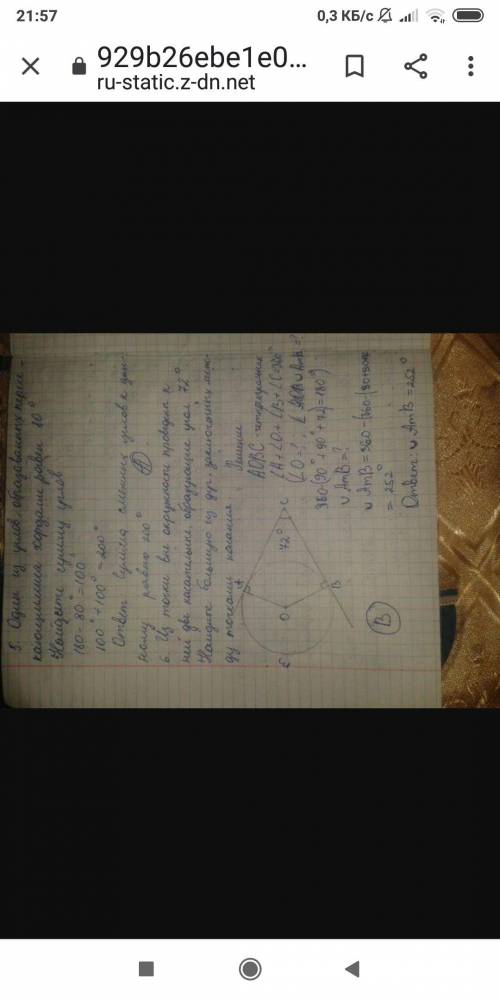 21:57
0,3 КБ/с
929b26ebe1e0...
ru-static.z-dn.net
5. Один из углов образованных пересе-
кающимися хордами равен 80°
Найдите сумму углов
180 - 80° = 100°
100° + 100° = 200°
Ответ сумма смежных углов к дан-
ному равна 200° А
6. Из точки вне окружности проведены к
ней две касательные, образующие угол 72°
Найдите большую из дуг, заключенных меж-
ду точками касания
Решение
AOBC - четырехугольник
∠A + ∠O + ∠B + ∠C = 360°
∠O = ?
∪ AmB = ?
360 - (90 + 90 + 72) = 180°)
∪ AmB = ?
∪ AmB = 360 - (360 - (90 + 90 + 72
= 252°
Ответ: ∪ AmB = 252°
A
72°
C
O
B
E
В